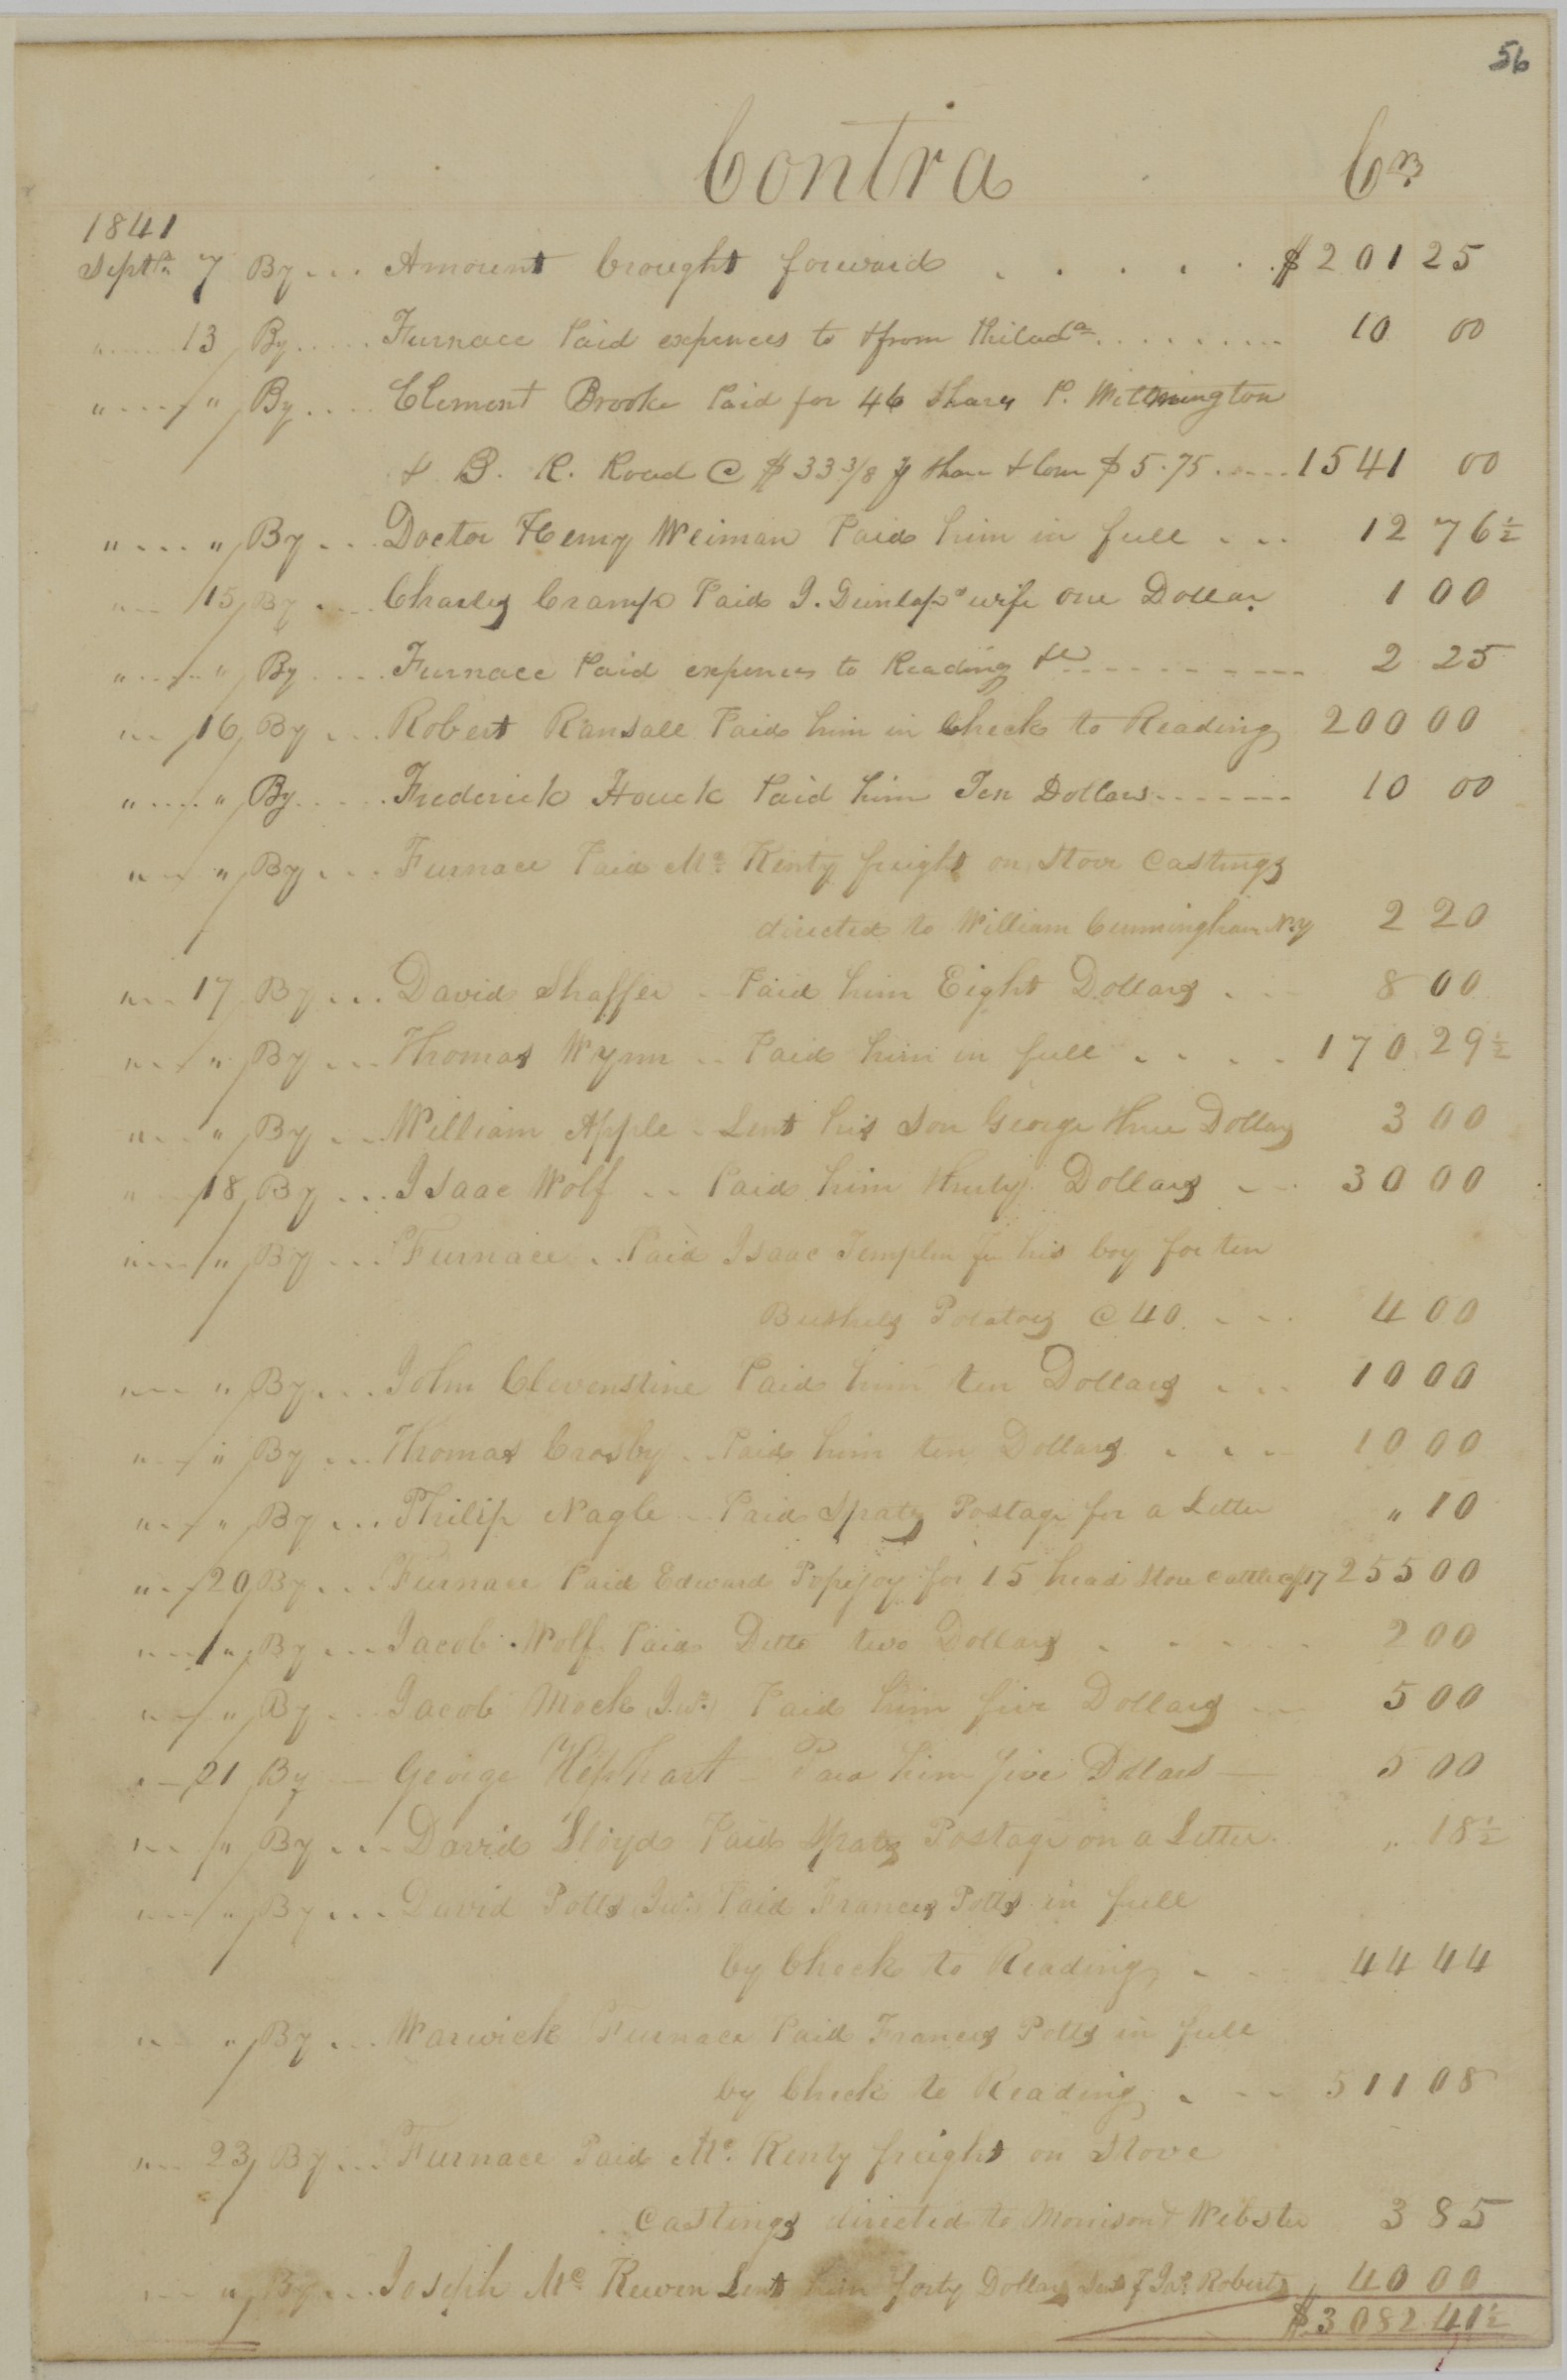 56
Contra Cr
1841
Septr 7 By ... Amount brought forward . . . . . $ 201 25
" 13 By ..... Furnace Paid expences to & from Philada ......... 10 00
" " By .... Clement Brooke Paid for 46 Shares P. Willmington
& B. R. Road @ $33 3/8 p share & Com $5.75 ..... 1541 00
" " By ... Doctor Henry Weiman Paid him in full ... 12 76½
" 15 By ... Charles Cramp Paid J. Dunlap's wife one Dollar 1 00
" " By .... Furnace Paid expences to Reading &c ......... 2 25
" 16 By ... Robert Ransall Paid him in Check to Reading 200 00
" " By ..... Frederick Houck Paid him Ten Dollars ....... 10 00
" " By ... Furnace Paid Mc Kenty freight on Stove Castings
directed to William Cunningham N.Y 2 20
" 17 By ... David Shaffer .. Paid him Eight Dollars ... 8 00
" " By ... Thomas Wynn .. Paid him in full .... 170 29½
" " By ... William Apple . Lent his Son George three Dollars 3 00
" 18 By ... Isaac Wolf .. Paid him thirty Dollars ... 30 00
" " By ... Furnace .. Paid Isaac Templin Jr his boy for ten
Bushels Potatoes @ 40 ... 4 00
" " By ... John Clevenstine Paid him ten Dollars ... 10 00
" " By ... Thomas Crosby .. Paid him ten Dollars ... 10 00
" " By ... Philip Nagle .. Paid Spatz Postage for a Letter " 10
" 20 By ... Furnace Paid Edward Popejoy for 15 head Store Cattle @ $17 255 00
" " By ... Jacob Wolf Paid Ditto two Dollars ..... 2 00
" " By ... Jacob Mock Junr Paid him five Dollars ... 5 00
" 21 By — George Hephart — Paid him five Dollars — 5 00
" " By ... David Lloyd Paid Spatz Postage on a Letter. " 18½
" " By ... David Potts Junr Paid Frances Potts in full
by Check to Reading ... 44 44
" " By ... Warwick Furnace Paid Frances Potts in full
by Check to Reading ... 511 08
" 23 By ... Furnace Paid Mc Kenty freight on Stove
Castings directed to Morrison & Webster 3 85
" " By ... Joseph Mc Kewen Lent him forty Dollars Jno. Roberts 40 00
$ 3082 41½